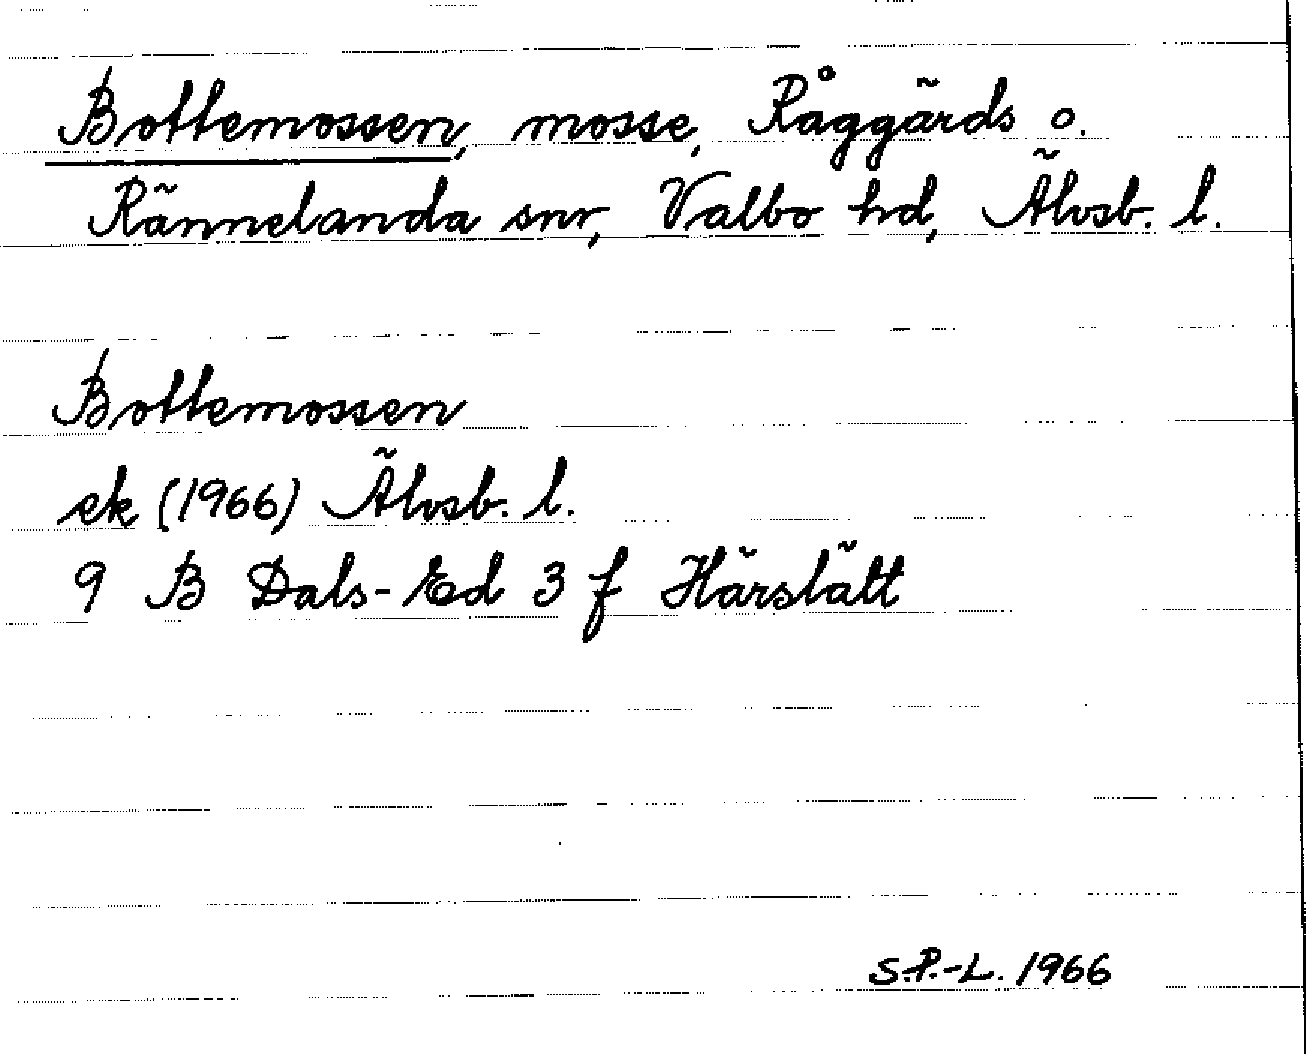 Bottemossen, mosse, Råggärds o.
Rännelanda snr, Valbo hd, Älvsb. l.
Bottemossen
ek (1966) Älvsb. l.
9 B Dals-Ed 3 f Härslätt
S.P.-L. 1966